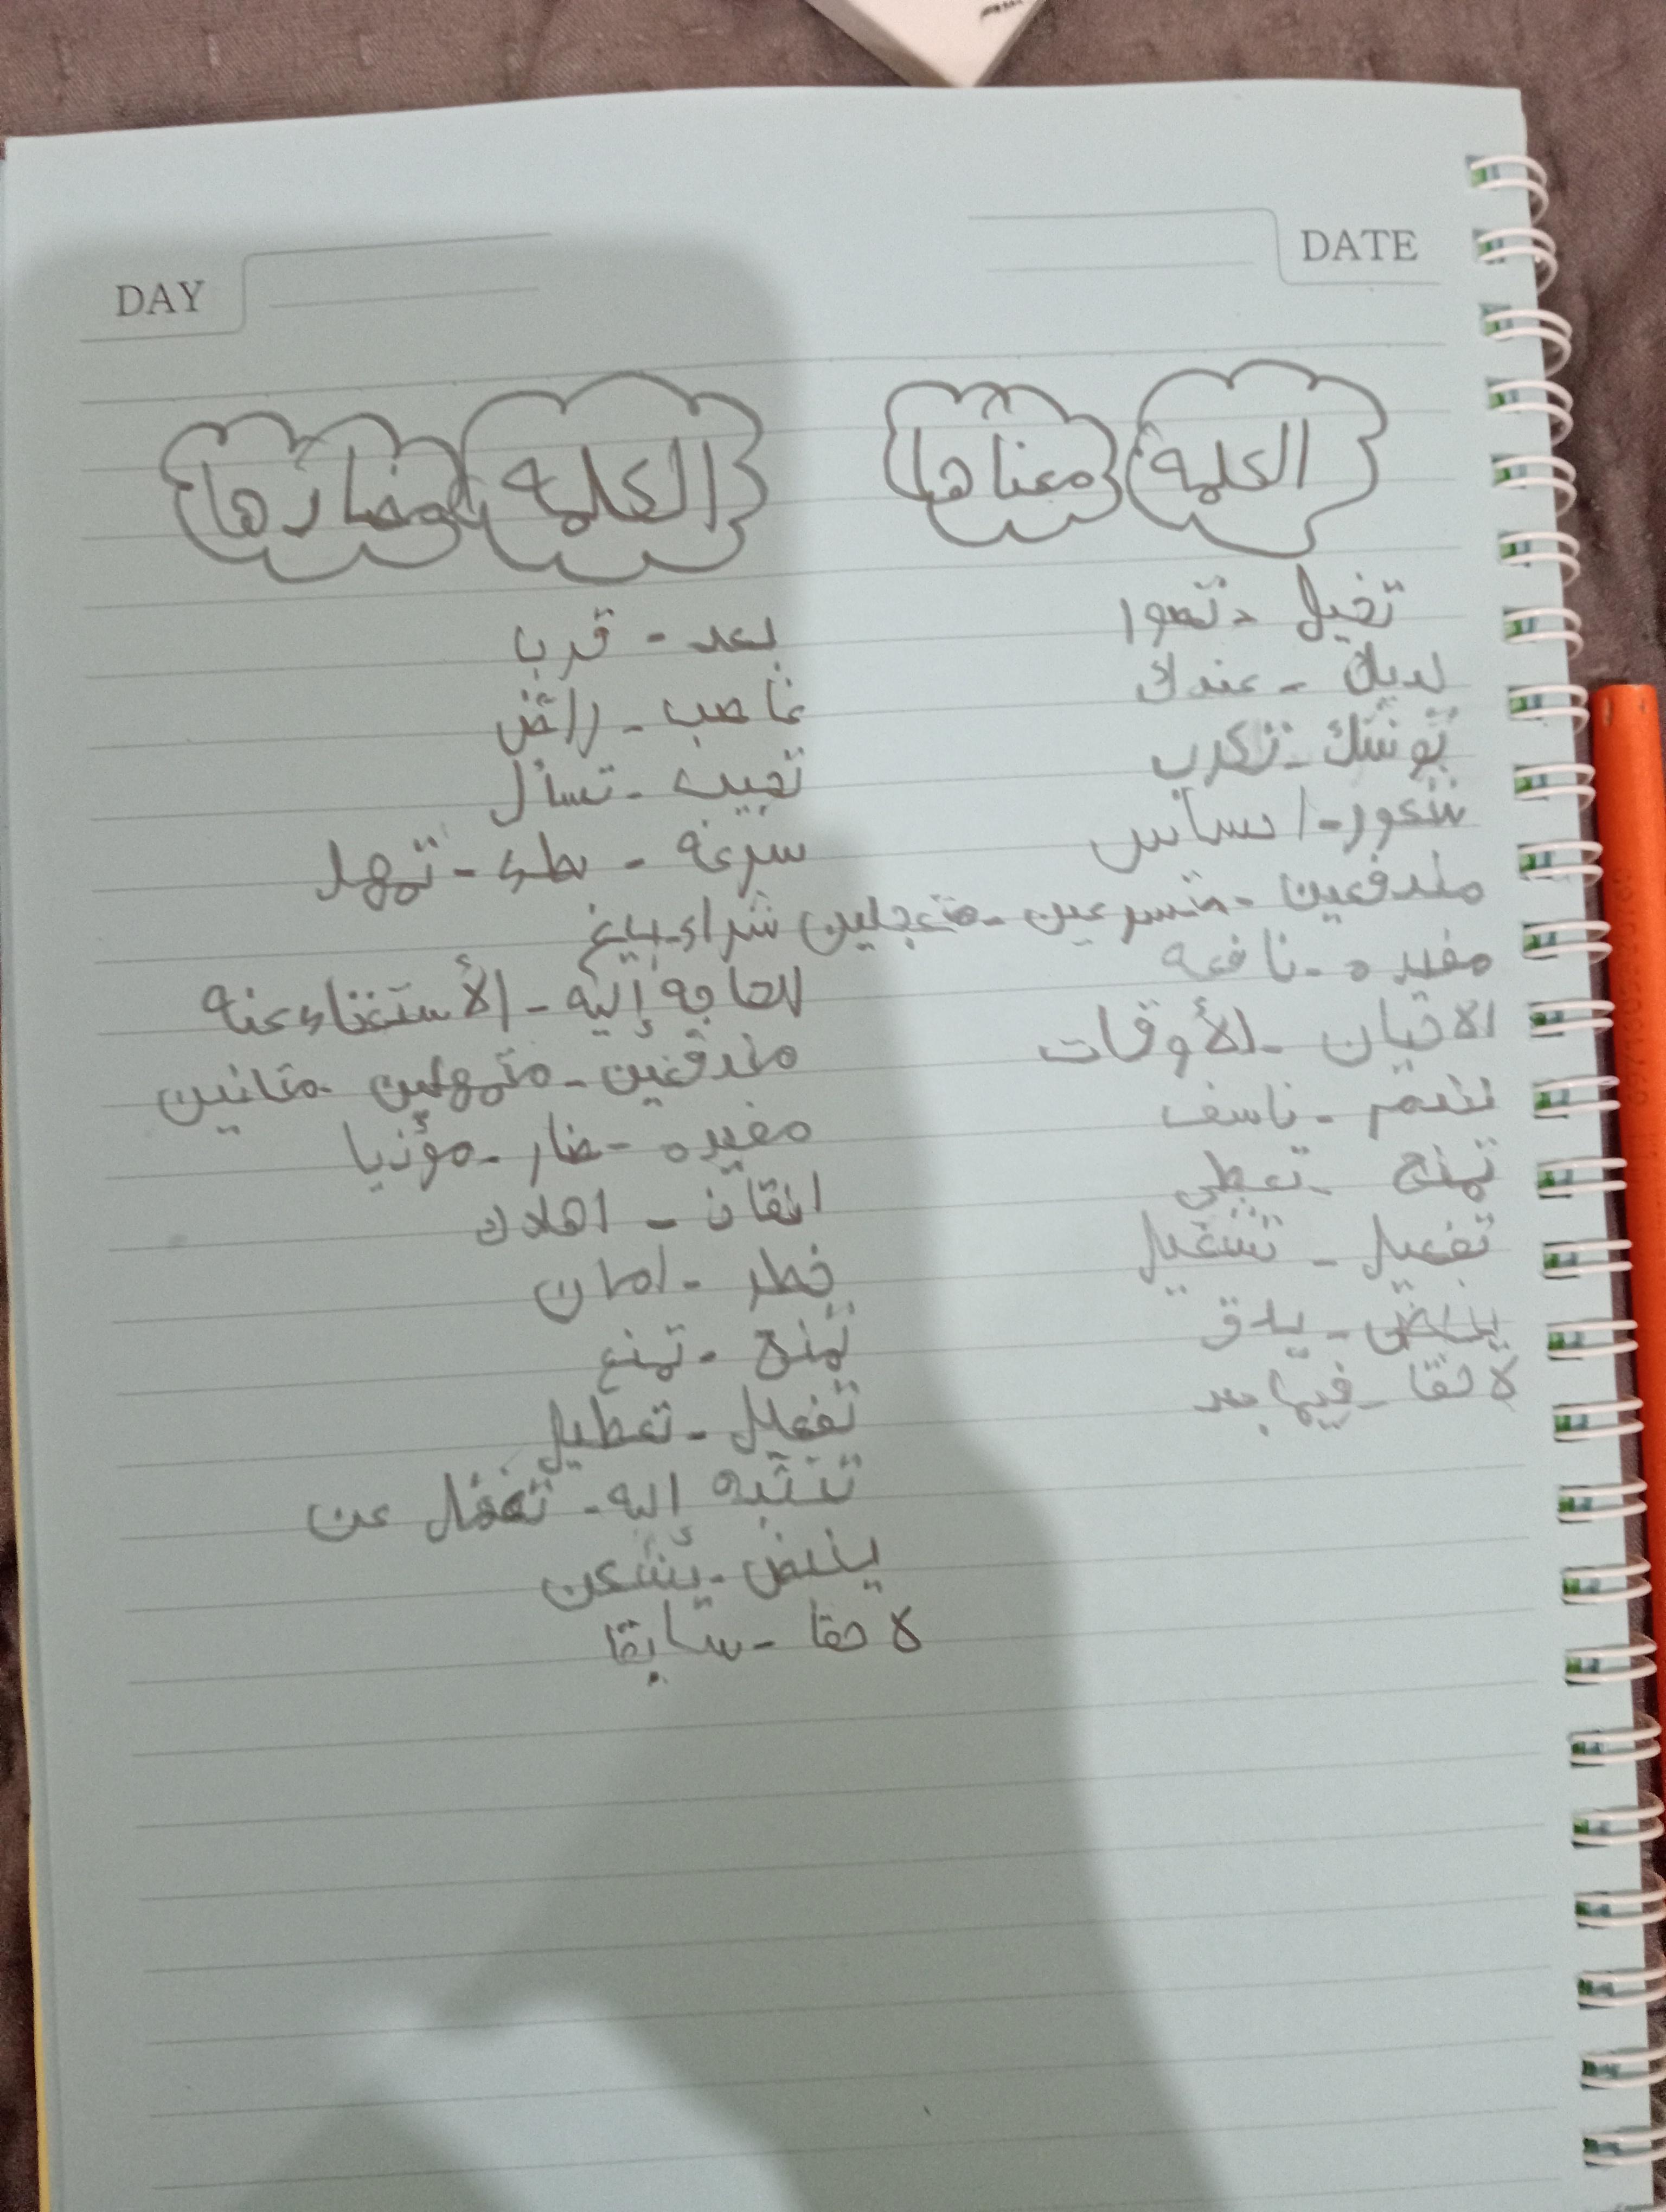 DATE
DAY
الكلمه معناها
تخيل - تصوا
لديك - عندك
توشك - تكرب
شعور - احساس
مندفعين - متسرعين - متعجلين
مفيده - نافعه
الاحيان - الأوقات
تندم - تاسف
تمنح - تعطي
تفعيل - تشغيل
ينبض - يدق
لاحقا - فيما بعد
الكلمه ومضادها
بعد - قربا
غاصب - راض
تجيب - تسأل
سرعه - بطء - تمهد
شراء - بيع
الحاجه إليه - الأستغناء عنه
مندفعين - متمهلين - متانين
مفيده - ضار - مؤذيا
انقاذ - اهلاك
خطر - امان
تمنح - تمنع
تفعيل - تعطيل
تنتبه إليه - تغفل عن
ينبض - يسكن
لاحقا - سابقا